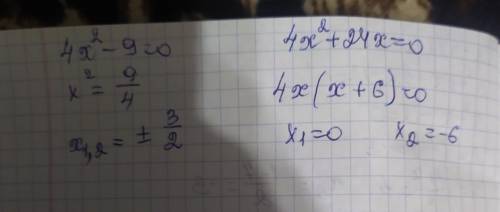 4x² - 9 = 0
x² = 9/4
x₁,₂ = ± 3/2
4x² + 24x = 0
4x(x + 6) = 0
x₁ = 0 x₂ = -6